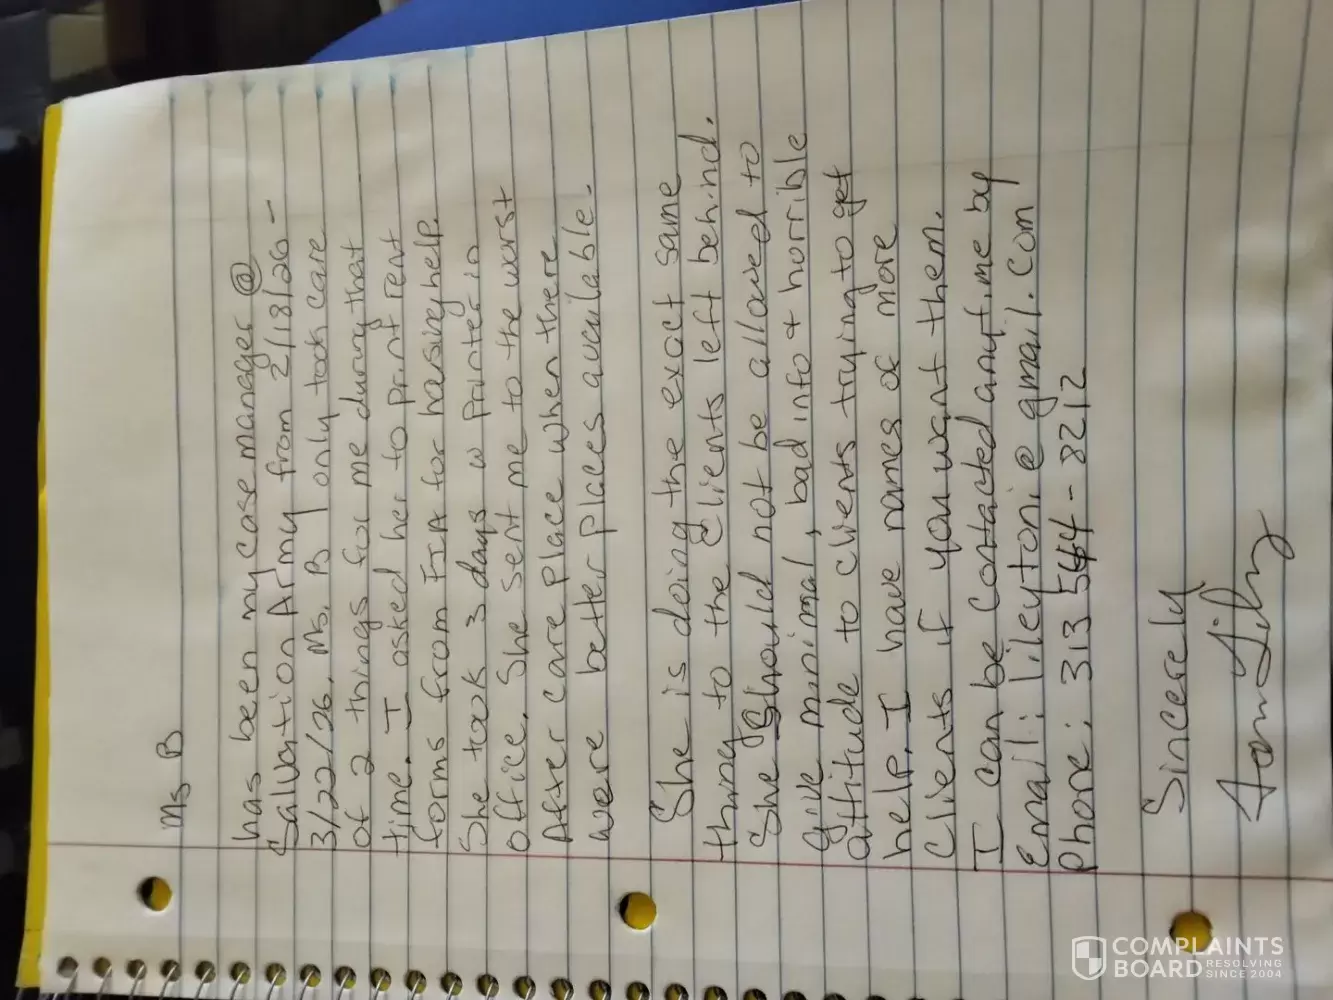 Ms B
has been my case manager @
Salvation Army from 2/18/26 -
3/22/26. Ms. B only took care
of 2 things for me during that
time. I asked her to print rent
forms from FIA for housing help.
She took 3 days w printer in
office. She sent me to the worst
After care place when there
were better places available.
She is doing the exact same
thing to the clients left behind.
She should not be allowed to
give minimal, bad info & horrible
attitude to clients trying to get
help. I have names of more
clients if you want them.
I can be contacted anytime by
Email: lileytoni@gmail.com
Phone: 313 544-8212
Sincerely
COMPLAINTS
BOARD RESOLVING
SINCE 2004